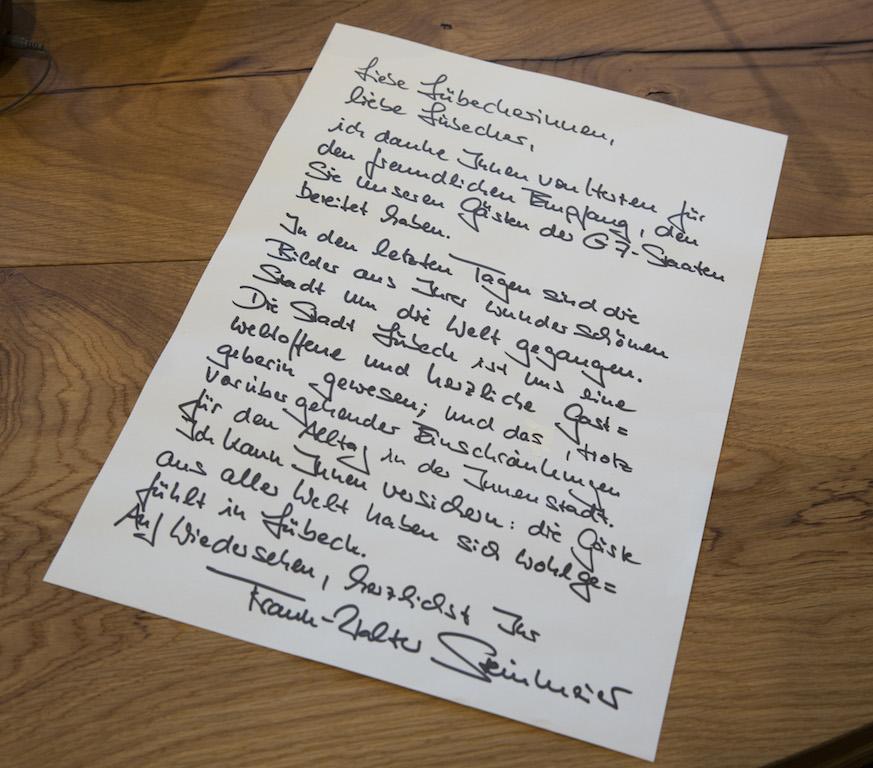 Liebe Lübeckerinnen,
liebe Lübecker,
ich danke Ihnen von Herzen für
den freundlichen Empfang, den
Sie unseren Gästen der G7-Staaten
bereitet haben.
In den letzten Tagen sind die
Bilder aus Ihrer wunderschönen
Stadt um die Welt gegangen.
Die Stadt Lübeck ist uns eine
weltoffene und herzliche Gast=
geberin gewesen; und das, trotz
vorübergehender Einschränkungen
für den Alltag in der Innenstadt.
Ich kann Ihnen versichern: die Gäste
aus aller Welt haben sich wohlge=
fühlt in Lübeck.
Auf Wiedersehen, herzlichst Ihr
Frank-Walter Steinmeier